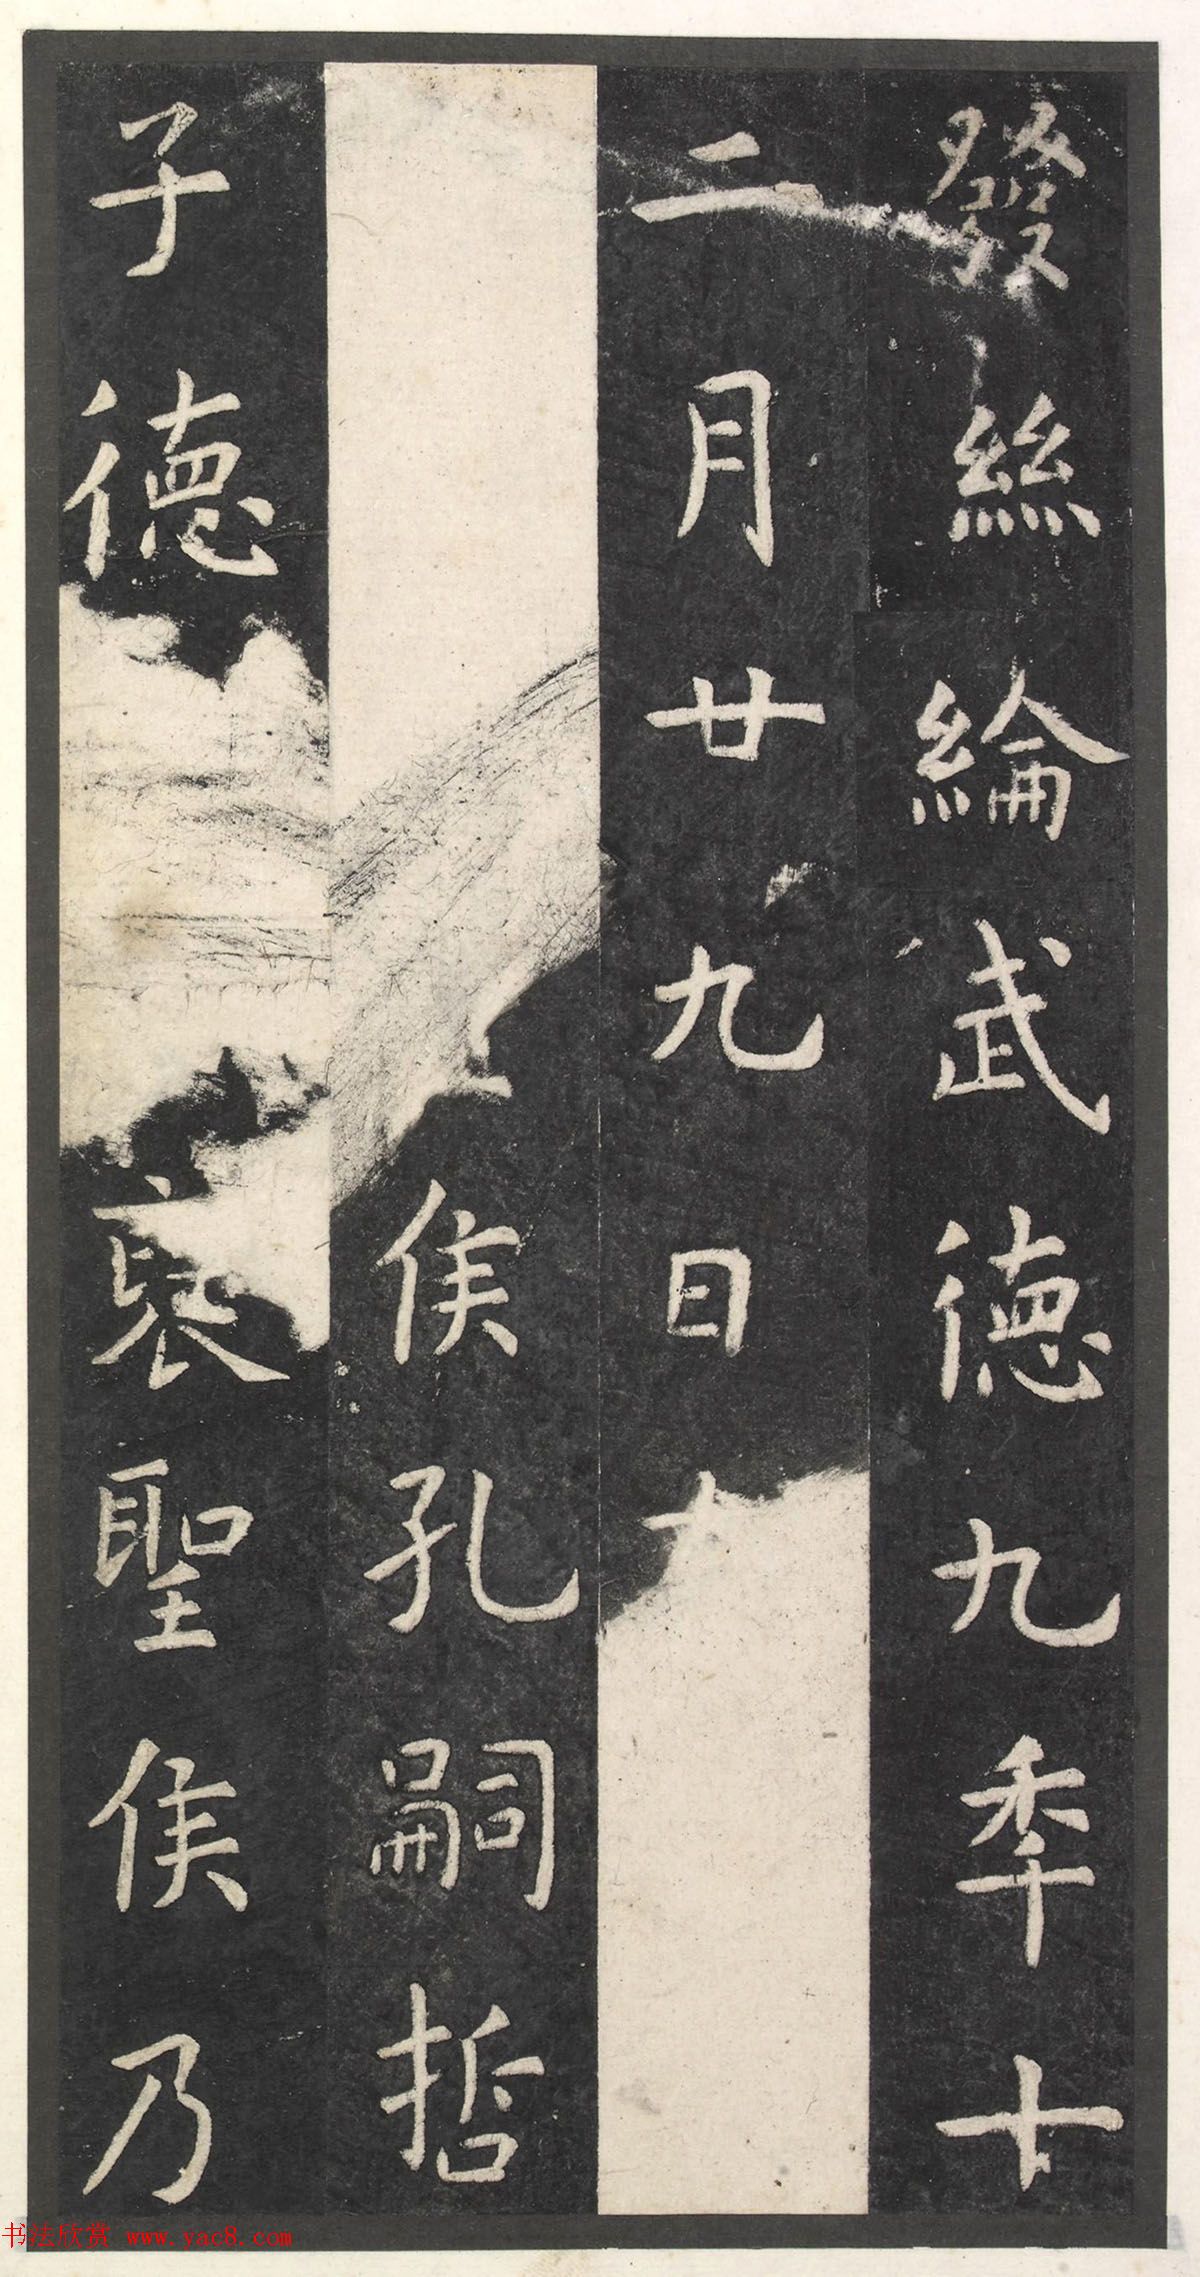 發絲綸武德九秊十
二月廿九日
侯孔嗣哲
子德襃聖侯乃
书法欣赏 www.yac8.com